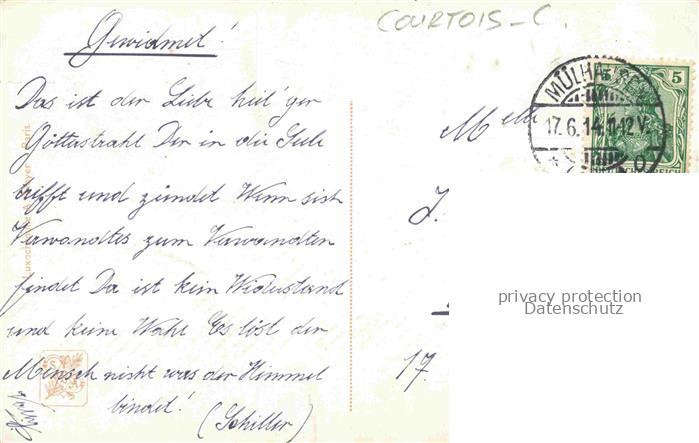 COURTOIS - C.
Gewidmet!
Das ist der Liebe heil'ger
Götterstrahl Der in die Seele
trifft und zündet Wenn sich
Verwandtes zum Verwandten
findet Da ist kein Widerstand
und keine Wahl Es löst der
Mensch nicht was der Himmel
bindet!
(Schiller)
5
MÜLHAUSEN
17.6.14.11-12V.
J.
17.
privacy protection
Datenschutz